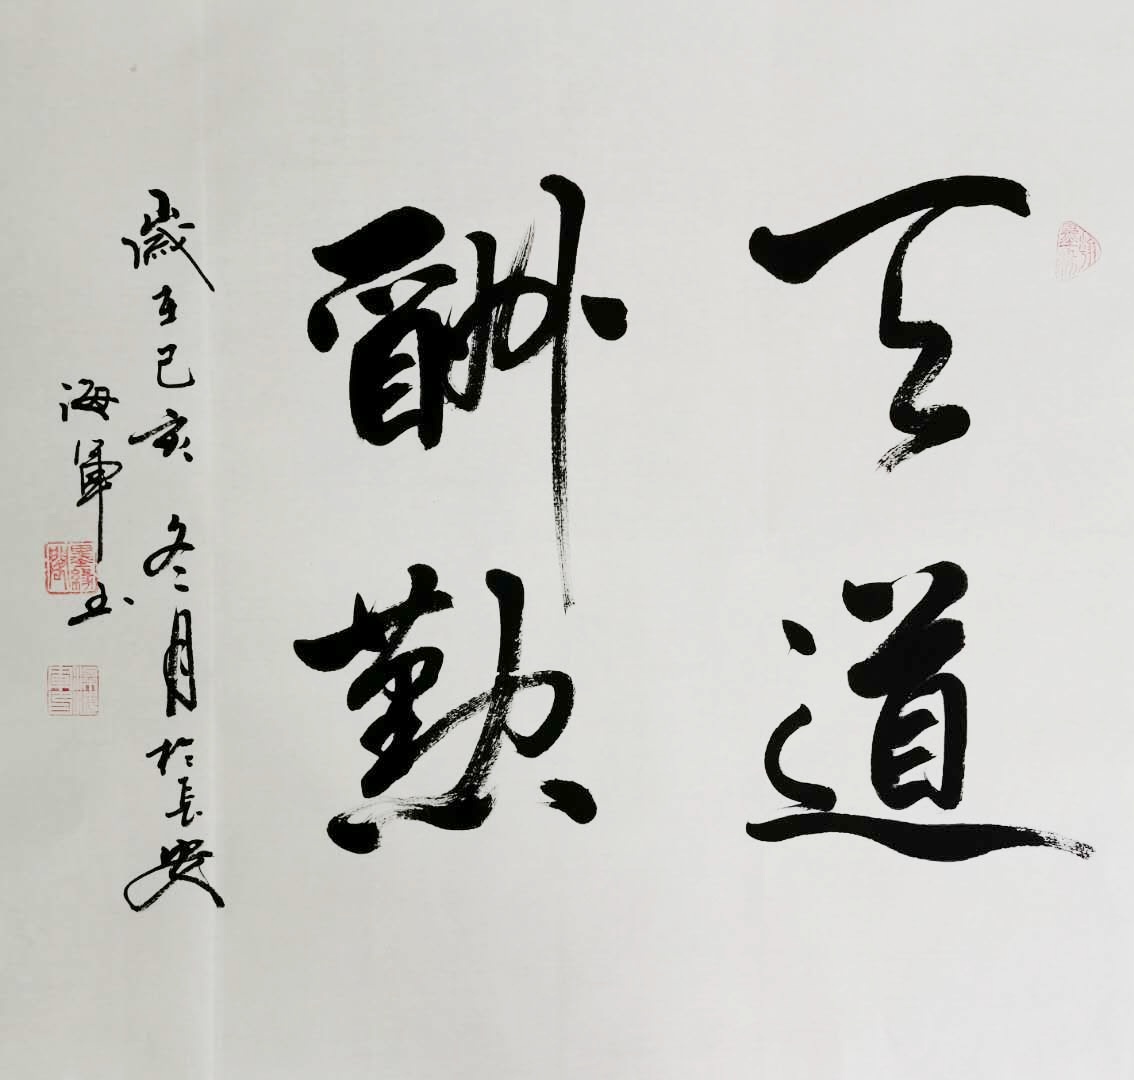 天道
酬勤
歲在己亥冬月於長安
海軍书